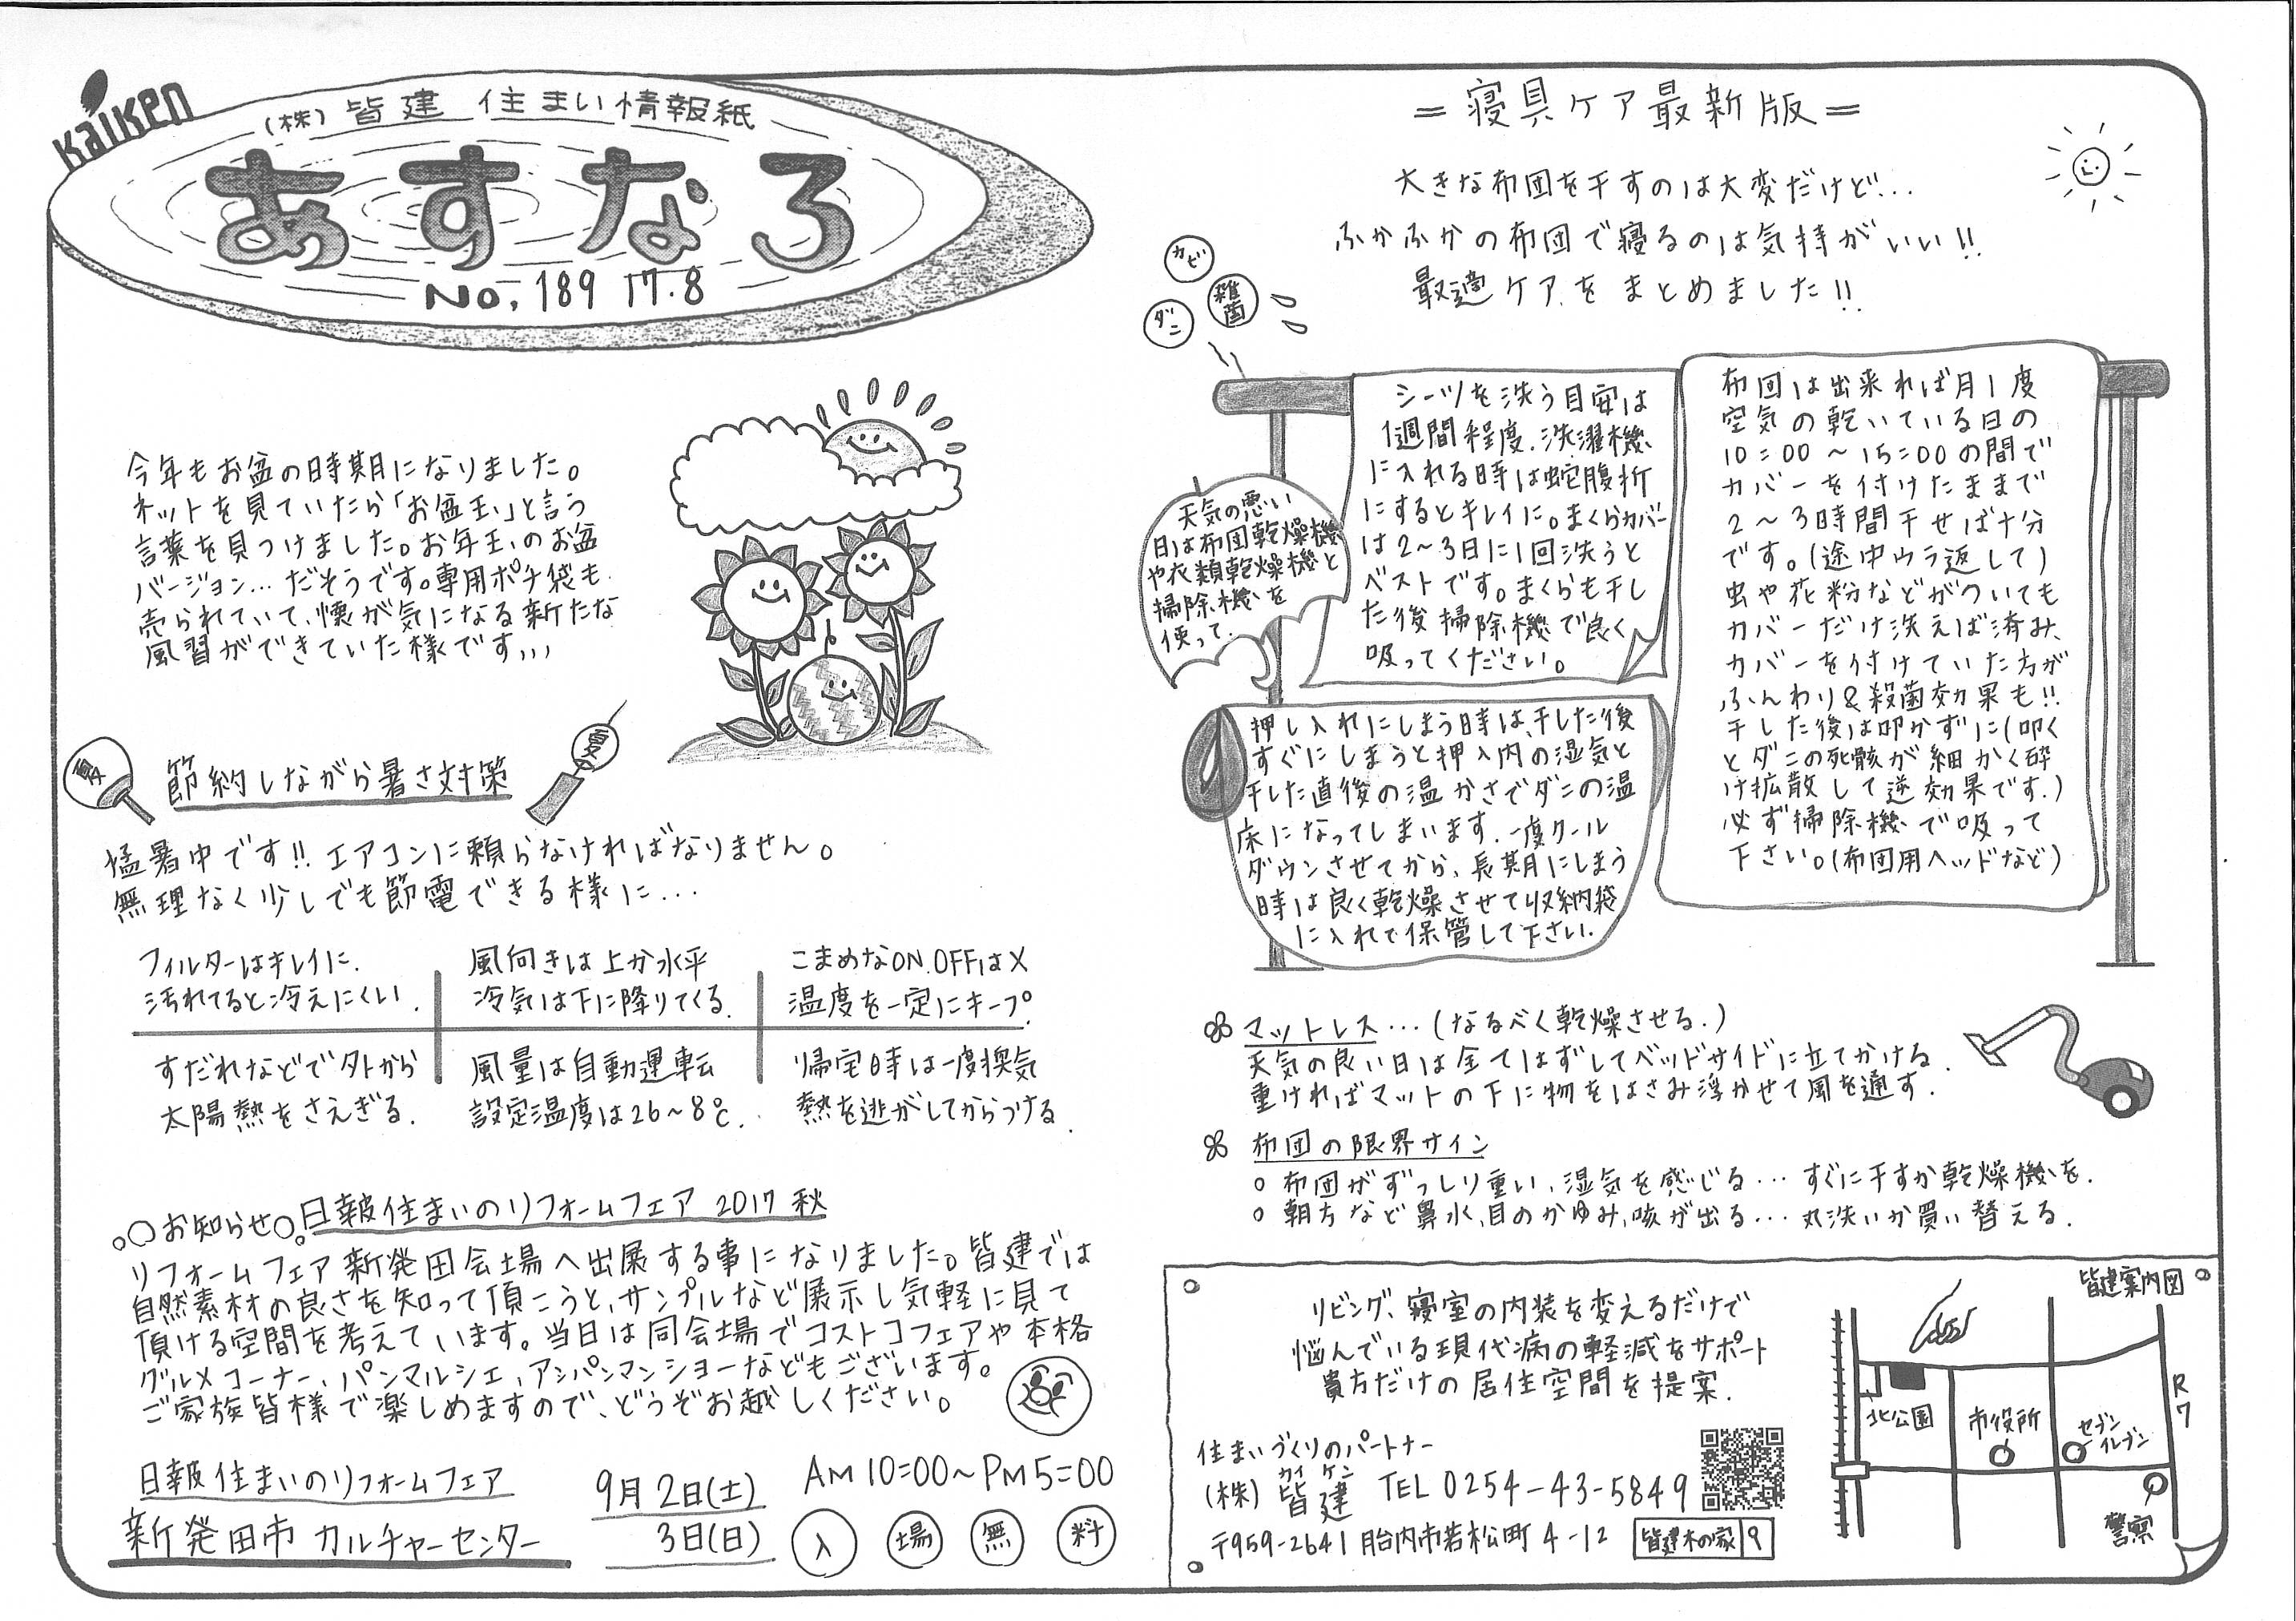 Kaiken
(株)皆建 住まい情報紙
あすなろ
No.189 17.8
今年もお盆の時期になりました。
ネットを見ていたら「お盆玉」と言う
言葉を見つけました。お年玉のお盆
バージョン…だそうです。専用ポチ袋も
売られていて、懐が気になる新たな
風習ができていた様です,,,
夏
節約しながら暑さ対策
夏
猛暑中です!!エアコンに頼らなければなりません。
無理なく少しでも節電できる様に…
フィルターはキレイに.
汚れてると冷えにくい.
風向きは上か水平
冷気は下に降りてくる.
こまめなON.OFFは×
温度を一定にキープ.
すだれなどで外から
太陽熱をさえぎる.
風量は自動運転
設定温度は26~8℃.
帰宅時は一度換気
熱を逃がしてからつける.
お知らせ 日報住まいのリフォームフェア 2017 秋
リフォームフェア新発田会場へ出展する事になりました。皆建では
自然素材の良さを知って頂こうと、サンプルなど展示し気軽に見て
頂ける空間を考えています。当日は同会場でコストコフェアや本格
グルメコーナー、パンマルシェ、アンパンマンショーなどもございます。
ご家族皆様で楽しめますので、どうぞお越しください。
日報住まいのリフォームフェア
新発田市 カルチャーセンター
9月2日(土)
3日(日)
AM10=00~PM5=00
入場無料
=寝具ケア最新版=
大きな布団を干すのは大変だけど…
ふかふかの布団で寝るのは気持がいい!!
最適ケアをまとめました!!
カビ
雑菌
ダニ
天気の悪い
日は布団乾燥機
や衣類乾燥機と
掃除機を
使って.
シーツを洗う目安は
1週間程度.洗濯機
に入れる時は蛇腹折
にするとキレイに。まくらカバー
は2~3日に1回洗うと
ベストです。まくらも干し
た後掃除機で良く
吸ってください。
布団は出来れば月1度
空気の乾いている日の
10=00~15=00の間で
カバーを付けたままで
2~3時間干せば十分
です。(途中ウラ返して)
虫や花粉などがついても
カバーだけ洗えば済み、
カバーを付けていた方が
ふんわり&殺菌効果も!!
干した後は叩かずに(叩く
とダニの死骸が細かく砕
け拡散して逆効果です.)
必ず掃除機で吸って
下さい。(布団用ヘッドなど)
押し入れにしまう時は、干した後
すぐにしまうと押入内の湿気と
干した直後の温かさでダニの温
床になってしまいます.一度クール
ダウンさせてから、長期にしまう
時は良く乾燥させて収納袋
に入れて保管して下さい.
マットレス…(なるべく乾燥させる.)
天気の良い日は全てはずしてベッドサイドに立てかける.
重ければマットの下に物をはさみ浮かせて風を通す.
布団の限界サイン
○ 布団がずっしり重い、湿気を感じる…すぐに干すか乾燥機を.
○ 朝方など鼻水、目のかゆみ、咳が出る…丸洗いか買い替える.
リビング、寝室の内装を変えるだけで
悩んでいる現代病の軽減をサポート
貴方だけの居住空間を提案.
住まいづくりのパートナー
カイ ケン
(株)皆建 TEL 0254-43-5849
〒959-2641 胎内市若松町 4-12
皆建木の家 9
皆建案内図
北公園
市役所
セブン
イレブン
R7
警察